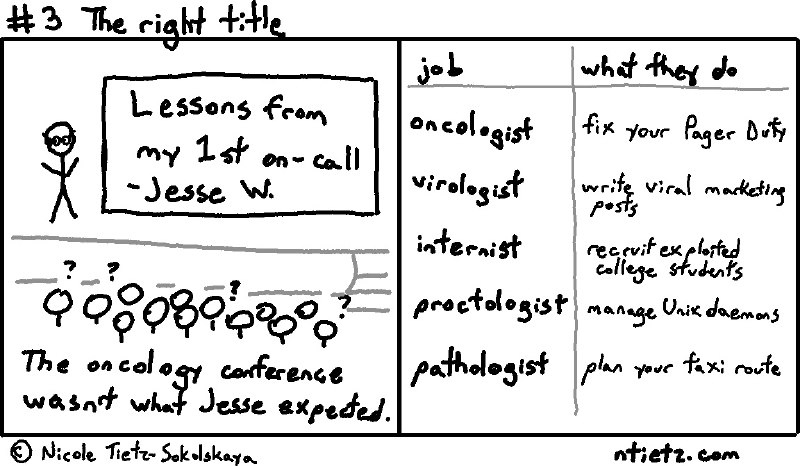 #3 The right title
Lessons from
my 1st on-call
-Jesse W.
? ? ? ?
The oncology conference
wasn't what Jesse expected.
job what they do
oncologist fix your Pager Duty
virologist write viral marketing
posts
internist recruit exploited
college students
proctologist manage Unix daemons
pathologist plan your taxi route
© Nicole Tietz-Sokolskaya
ntietz.com